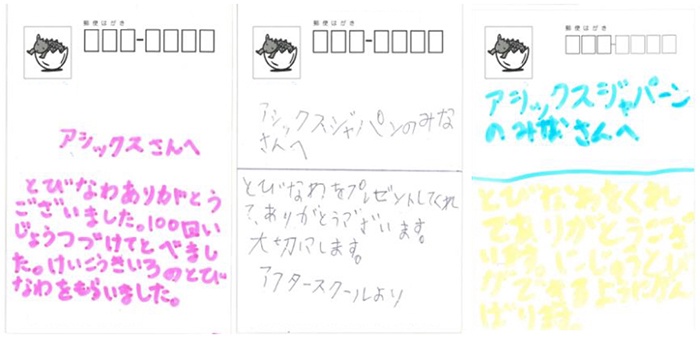 郵便はがき
アシックスさんへ
とびなわありがとう
ございました。100回い
じょうつづけてとべまし
た。けいこうきいろのとび
なわをもらいました。
郵便はがき
アシックスジャパンのみな
さんへ
とびなわをプレゼントしてくれ
て、ありがとうございます。
大切にします。
アフタースクールより
郵便はがき
アシックスジャパーン
のみなさんへ
とびなわをくれし
てありがとうござ
います。にじゅうとび
ができるようにがん
ばります。